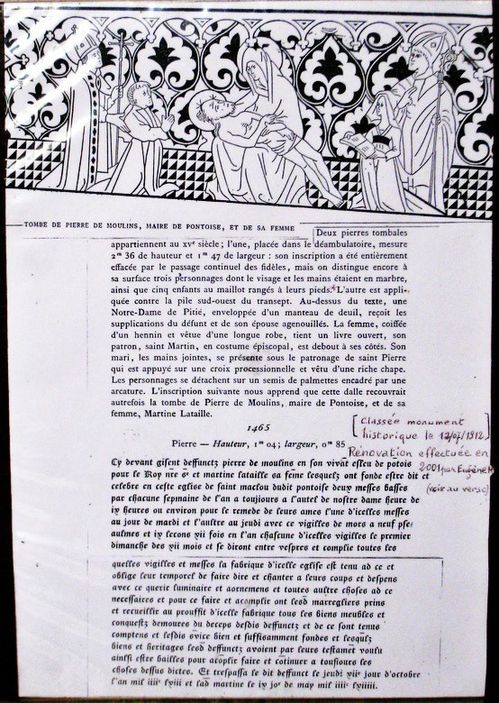 TOMBE DE PIERRE DE MOULINS, MAIRE DE PONTOISE, ET DE SA FEMME
Deux pierres tombales
appartiennent au XVe siècle; l'une, placée dans le déambulatoire, mesure
2m 36 de hauteur et 1m 47 de largeur : son inscription a été entièrement
effacée par le passage continuel des fidèles, mais on distingue encore à
sa surface trois personnages dont le visage et les mains étaient en marbre,
ainsi que cinq enfants au maillot rangés à leurs pieds. L'autre est appli-
quée contre la pile sud-ouest du transept. Au-dessus du texte, une
Notre-Dame de Pitié, enveloppée d'un manteau de deuil, reçoit les
supplications du défunt et de son épouse agenouillés. La femme, coiffée
d'un hennin et vêtue d'une longue robe, tient un livre ouvert, son
patron, saint Martin, en costume épiscopal, est debout à ses côtés. Son
mari, les mains jointes, se présente sous le patronage de saint Pierre
qui est appuyé sur une croix processionnelle et vêtu d'une riche chape.
Les personnages se détachent sur un semis de palmettes encadré par une
arcature. L'inscription suivante nous apprend que cette dalle recouvrait
autrefois la tombe de Pierre de Moulins, maire de Pontoise, et de sa
femme, Martine Lataille.
1465
Pierre — Hauteur, 1m 04; largeur, 0m 85
[Classée monument
historique le 12/07/1912
Rénovation effectuée en
2001 par Eugène
(voir au verso)
Cy devant gisent deffunctz pierre de moulins en son vivāt esleu de potois
pour le Roy nre sr et martine lataille sa fēme lesquelz ont fonde estre dit et
celebre en ceste eglise de saint maclou dudit pontoise deux messes basses
par chacune sepmaine de l'an a toujours a l'autel de nostre dame heure de
ix heures ou environ pour le remede de leurs ames l'une d'icelles messes
au jour de mardi et l'aultre au jeudi avec ce vigilles de mors a neuf pse
aulmes et ix lecons vii fois en l'an chascune d'icelles vigilles le premier
dimanche des vii mois et se diront entre vespres et complie toutes les
quelles vigilles et messes la fabrique d'icelle eglise est tenu ad ce et
oblige leur temporel de faire dire et chanter a leurs coups et despens
avec ce querir luminaire et aornemens et toutes aultre choses ad ce
necessaires et pour ce faire et acomplir ont lesd marregliers prins
et recueillir au prouffit d'icelle fabrique tous les biens meubles et
conquestz demoures du deceps desdis deffunctz et de ce sont tenus
comptens et lesdis svice bien et suffisamment fondes et lesqulz
biens et heritages lesd deffunctz avoient par leurs testamet voulu
ainssi estre bailles pour acoplir faire et cotinuer a tousioures les
choses dessus dictes. Et trespassa le dit deffunct le jeudi viie jour d'octobre
l'an mil iiiic lxiii et lad martine le ix jor de may mil iiiic lxiiiii.